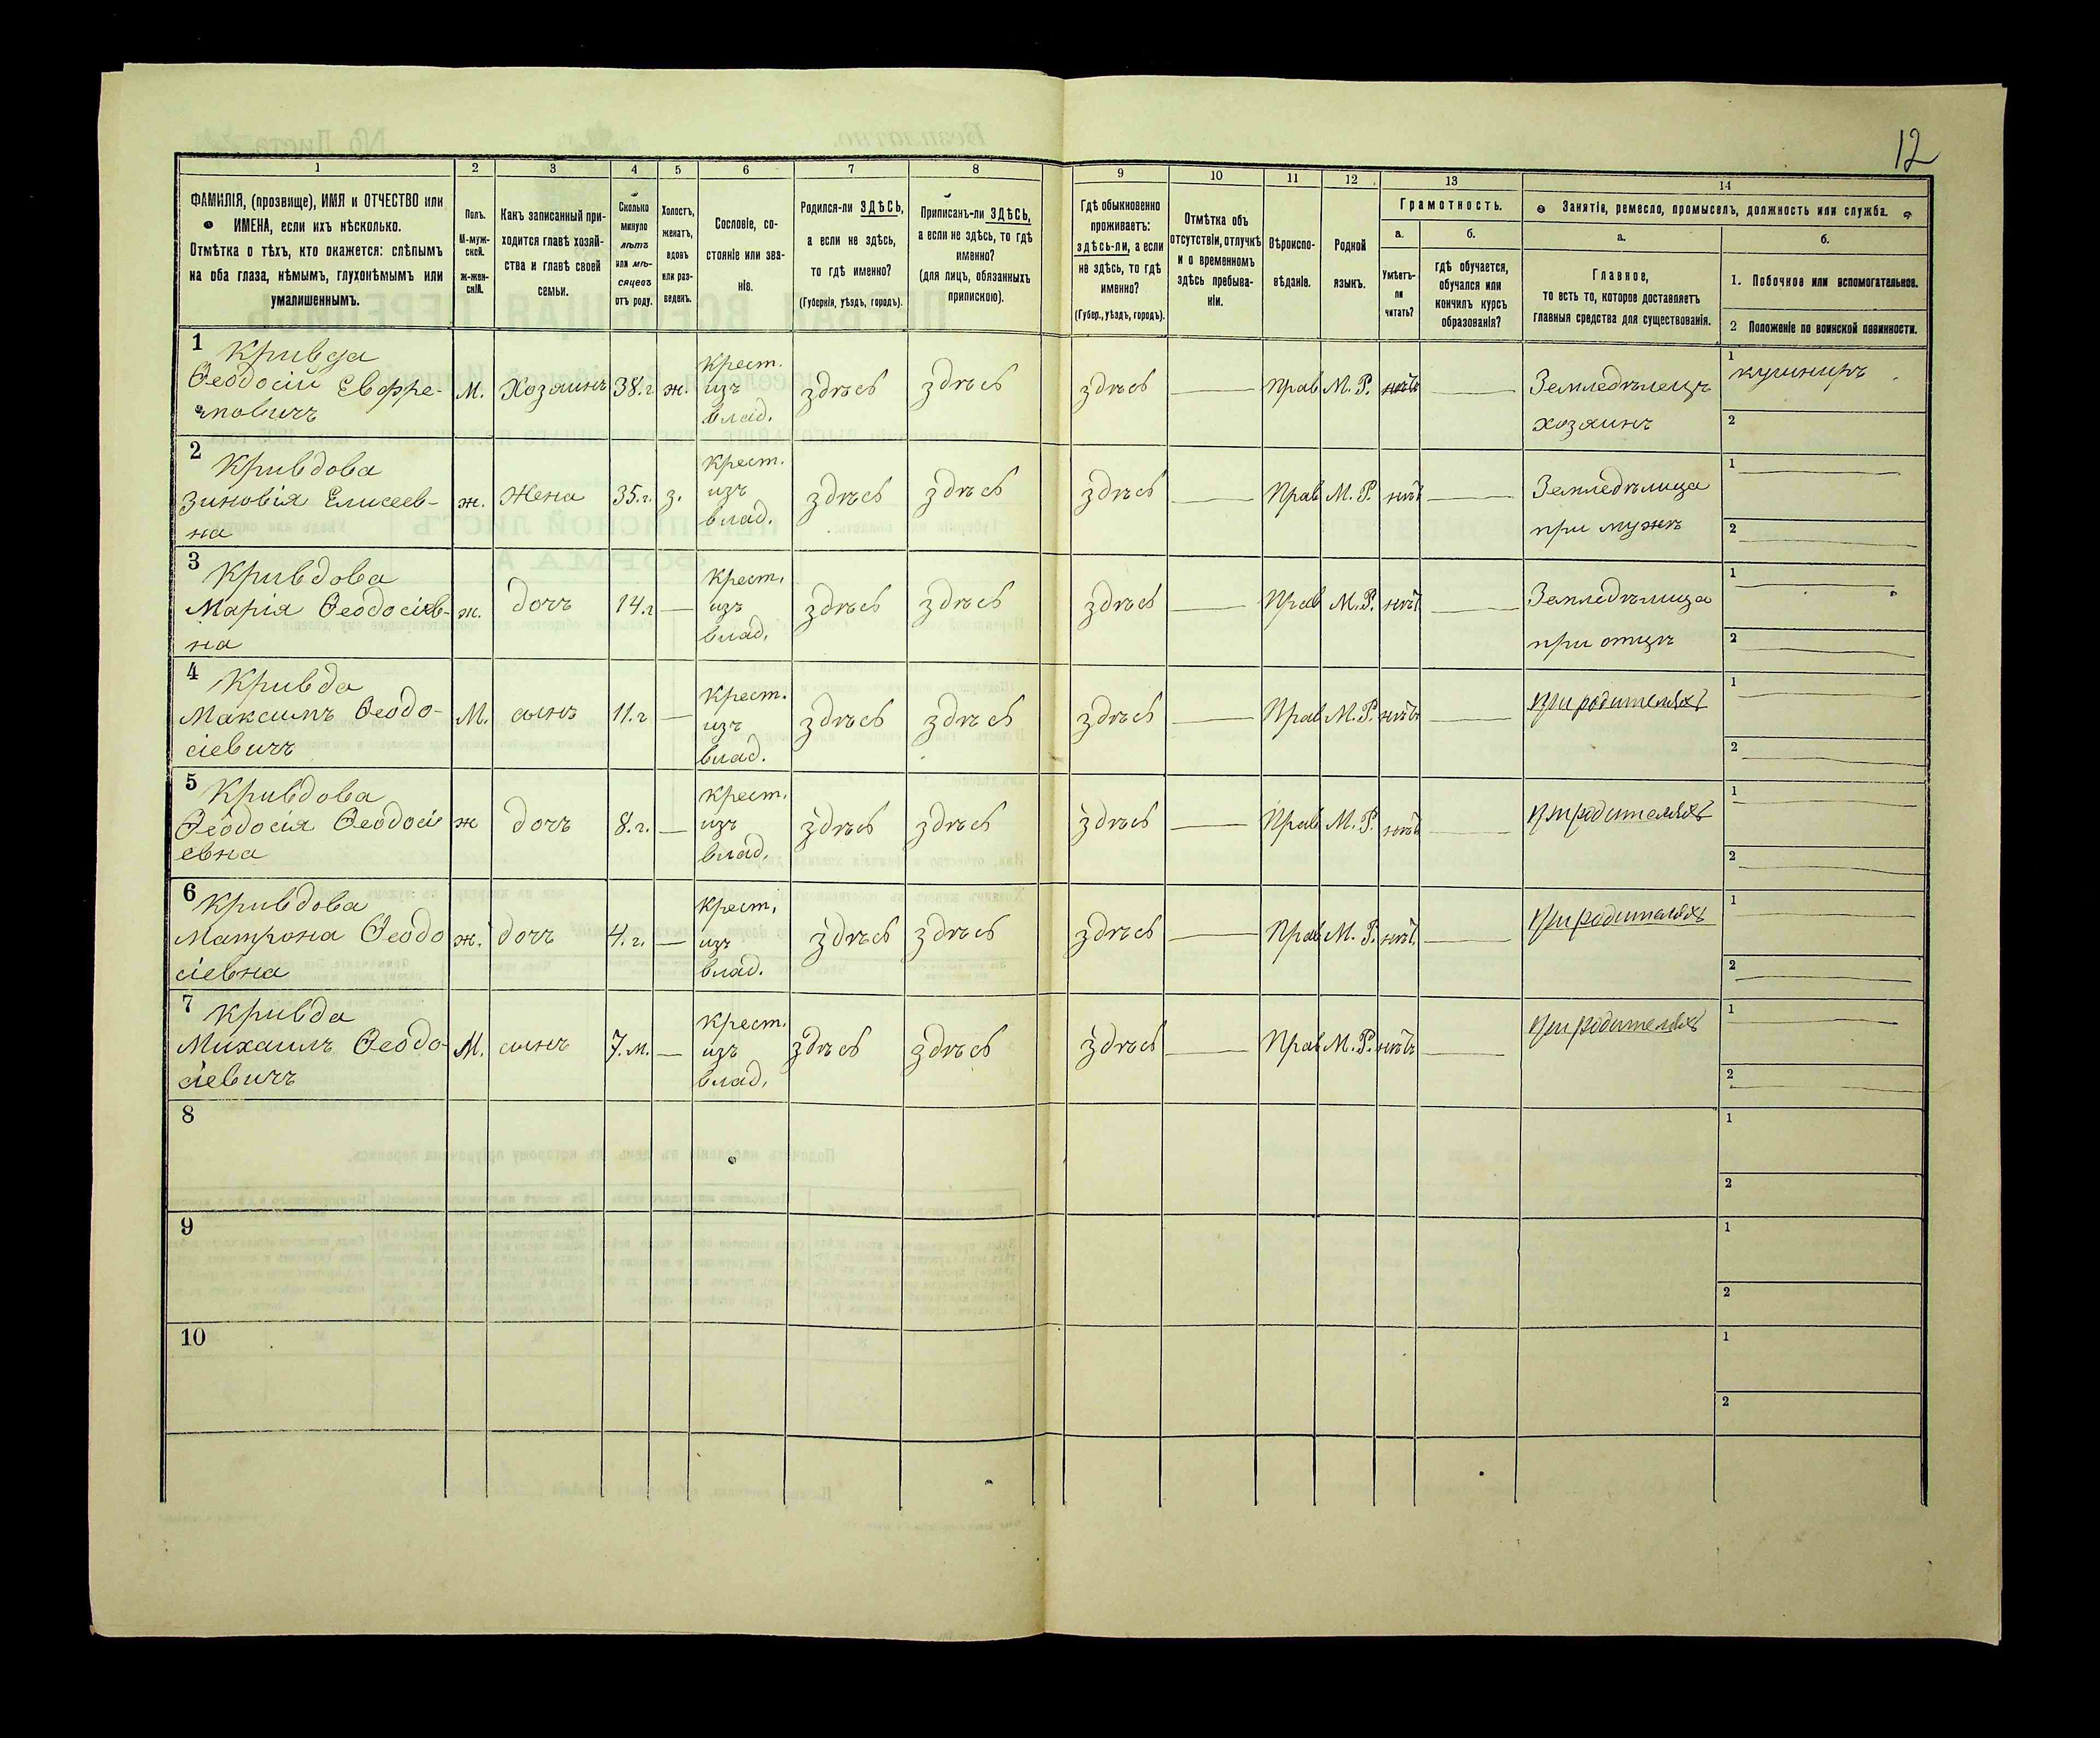 12
1
ФАМИЛІЯ, (прозвище), ИМЯ и ОТЧЕСТВО или
ИМЕНА, если ихъ нѣсколько.
Отмѣтка о тѣхъ, кто окажется: слѣпымъ
на оба глаза, нѣмымъ, глухонѣмымъ или
умалишеннымъ.
2
Полъ.
М-муж-
ской.
ж-жен-
скій.
3
Какъ записанный при-
ходится главѣ хозяй-
ства и главѣ своей
семьи.
4
Сколько
минуло
лѣтъ
или мѣ-
сяцевъ
отъ роду.
5
Холостъ,
женатъ,
вдовъ
или раз-
веденъ.
6
Сословіе, со-
стояніе или зва-
ніе.
7
Родился-ли ЗДѢСЬ,
а если не здѣсь,
то гдѣ именно?
(Губернія, уѣздъ, городъ).
8
Приписанъ-ли ЗДѢСЬ,
а если не здѣсь, то гдѣ
именно?
(для лицъ, обязанныхъ
припискою).
9
Гдѣ обыкновенно
проживаетъ:
здѣсь-ли, а если
не здѣсь, то гдѣ
именно?
(Губер., уѣздъ, городъ).
10
Отмѣтка объ
отсутствіи, отлучкѣ
и о временномъ
здѣсь пребыва-
ніи.
11
Вѣроиспо-
вѣданіе.
12
Родной
языкъ.
13
Грамотность.
а.
Умѣетъ-
ли
читать?
б.
гдѣ обучается,
обучался или
кончилъ курсъ
образованія?
14
Занятія, ремесло, промыселъ, должность или служба.
а.
Главное,
то есть то, которое доставляетъ
главныя средства для существованія.
б.
1. Побочное или вспомогательное.
2 Положеніе по воинской повинности.
1
Кривда
Ѳеодосій Евфре-
мовичъ
М.
Хозяинъ
38.г
ж.
Крест.
изъ
влад.
здѣсь
здѣсь
здѣсь
Прав
М. Р.
нѣтъ
Земледѣлецъ
хозяинъ
1
кушниръ
2
2
Кривдова
Зиновія Елисеев-
на
ж.
Жена
35.г.
з.
Крест.
изъ
влад.
здѣсь
здѣсь
здѣсь
Прав
М. Р.
нѣтъ
Земледѣлица
при мужѣ
1
2
3
Кривдова
Марія Ѳеодосіев-
на
ж.
дочъ
14.г
Крест.
изъ
влад.
здѣсь
здѣсь
здѣсь
Прав
М. Р.
нѣтъ
Земледѣлица
при отцѣ
1
2
4
Кривда
Максимъ Ѳеодо-
сіевичъ
М.
сынъ
11.г
Крест.
изъ
влад.
здѣсь
здѣсь
здѣсь
Прав
М. Р.
нѣтъ
при родителяхъ
1
2
5
Кривдова
Ѳеодосія Ѳеодосі
евна
ж
дочъ
8.г.
Крест.
изъ
влад.
здѣсь
здѣсь
здѣсь
Прав
М. Р.
нѣтъ
при родителяхъ
1
2
6
Кривдова
Матрона Ѳеодо
сіевна
ж.
дочъ
4.г.
Крест.
изъ
влад.
здѣсь
здѣсь
здѣсь
Прав
М. Р.
нѣтъ
при родителяхъ
1
2
7
Кривда
Михаилъ Ѳеодо-
сіевичъ
М.
сынъ
7.м.
Крест.
изъ
влад.
здѣсь
здѣсь
здѣсь
Прав
М. Р.
нѣтъ
при родителяхъ
1
2
8
1
2
9
1
2
10
1
2